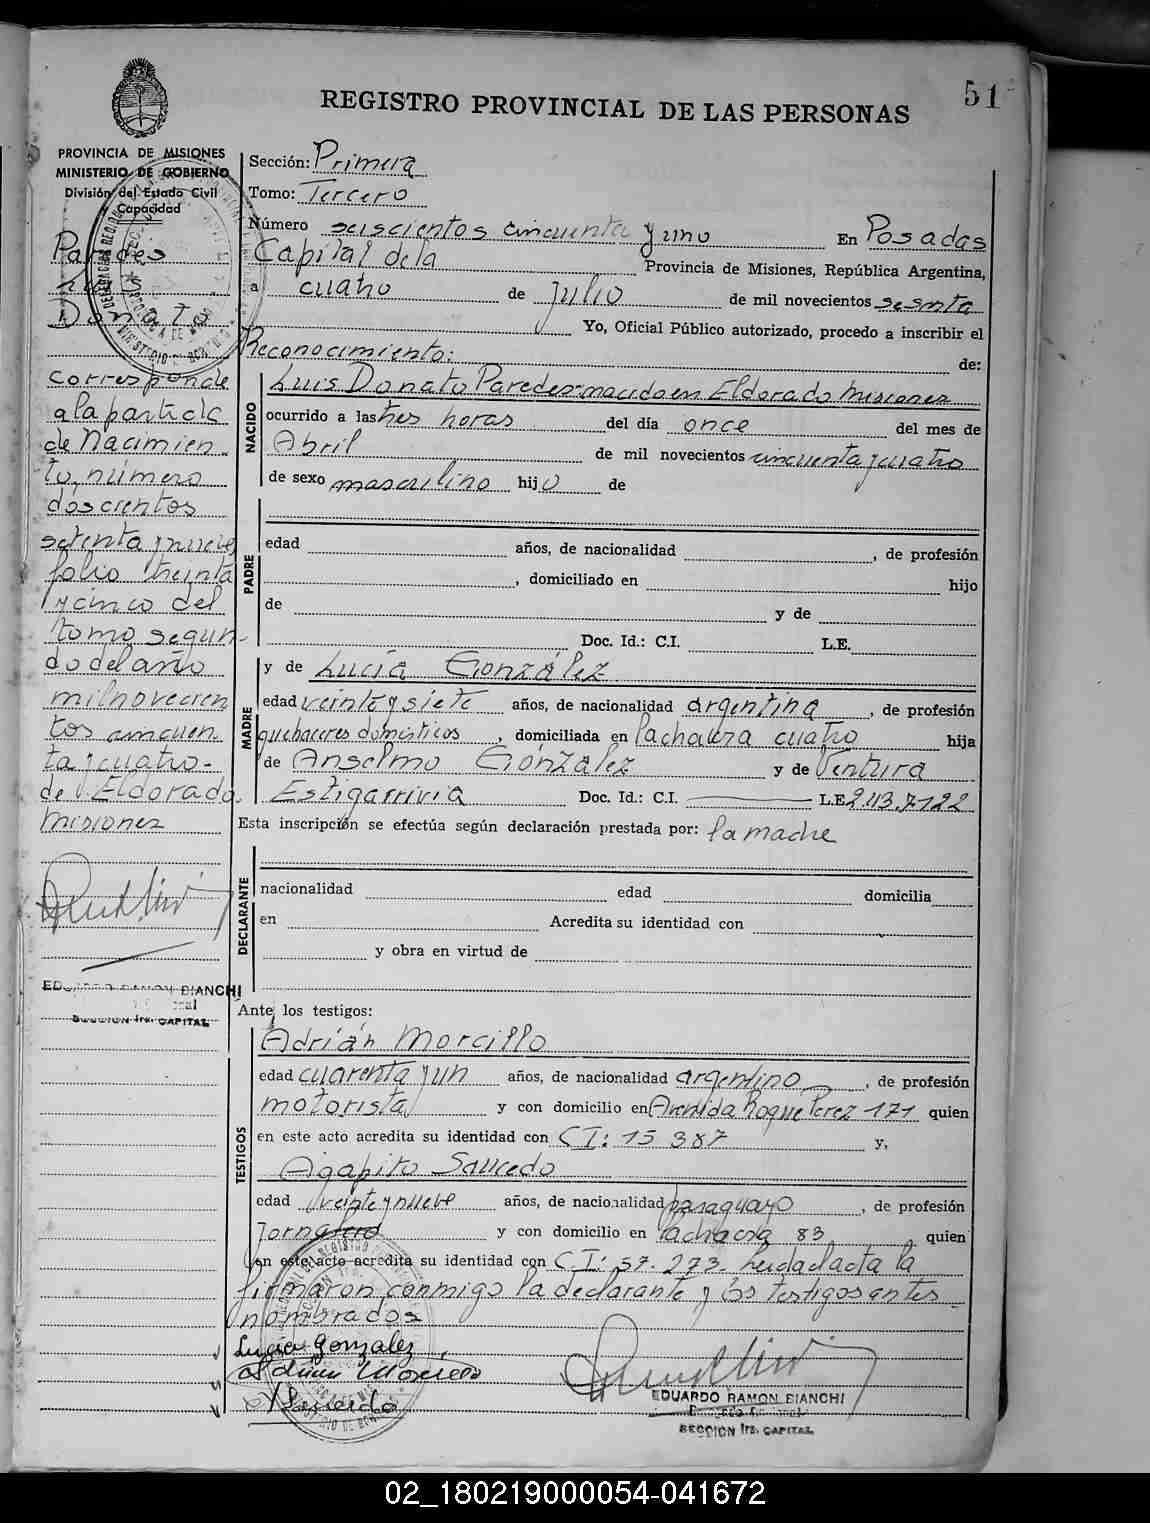 51
REGISTRO PROVINCIAL DE LAS PERSONAS
PROVINCIA DE MISIONES
MINISTERIO DE GOBIERNO
División del Estado Civil
Capacidad
Paredes
Luis
Donato
corresponde
a la partida
de Nacimien
to, número
doscientos
setenta y nueve
folio treinta
y cinco del
tomo segun-
do del año
mil novecien
tos cincuen-
ta y cuatro-
de Eldorado
Misiones
EDUARDO RAMON BIANCHI
SECCION 1ra. CAPITAL
Sección: Primera
Tomo: Tercero
Número seiscientos cincuenta y uno En Posadas
Capital de la Provincia de Misiones, República Argentina,
a cuatro de Julio de mil novecientos sesenta
Yo, Oficial Público autorizado, procedo a inscribir el
Reconocimiento: de:
NACIDO
Luis Donato Paredes - nacido en Eldorado Misiones
ocurrido a las tres horas del día once del mes de
Abril de mil novecientos cincuenta y cuatro
de sexo masculino hijo de
PADRE
edad años, de nacionalidad , de profesión
, domiciliado en hijo
de y de
Doc. Id.: C.I. L.E.
MADRE
y de Lucía González
edad veinte y siete años, de nacionalidad argentina , de profesión
quehaceres domésticos , domiciliada en la chacra cuatro hija
de Anselmo González y de Ventura
Estigarrivia Doc. Id.: C.I. L.E. 2.413.7122
Esta inscripción se efectúa según declaración prestada por: la madre
DECLARANTE
nacionalidad edad domicilia
en Acredita su identidad con
y obra en virtud de
Ante los testigos:
TESTIGOS
Adrián Morcillo
edad cuarenta y un años, de nacionalidad argentino , de profesión
motorista y con domicilio en Avenida Roque Perez 171 quien
en este acto acredita su identidad con CI: 15 387 y,
Agapito Saucedo
edad veinte y nueve años, de nacionalidad paraguayo , de profesión
Jornalero y con domicilio en la chacra 83 , quien
en este acto acredita su identidad con C.I: 57.273- leida el acta la
firmaron conmigo la declarante y los testigos antes
nombrados
Lucia gonzalez
Adrian Morcillo
A Saucedo
EDUARDO RAMON BIANCHI
SECCION 1ra. CAPITAL
02_180219000054-041672